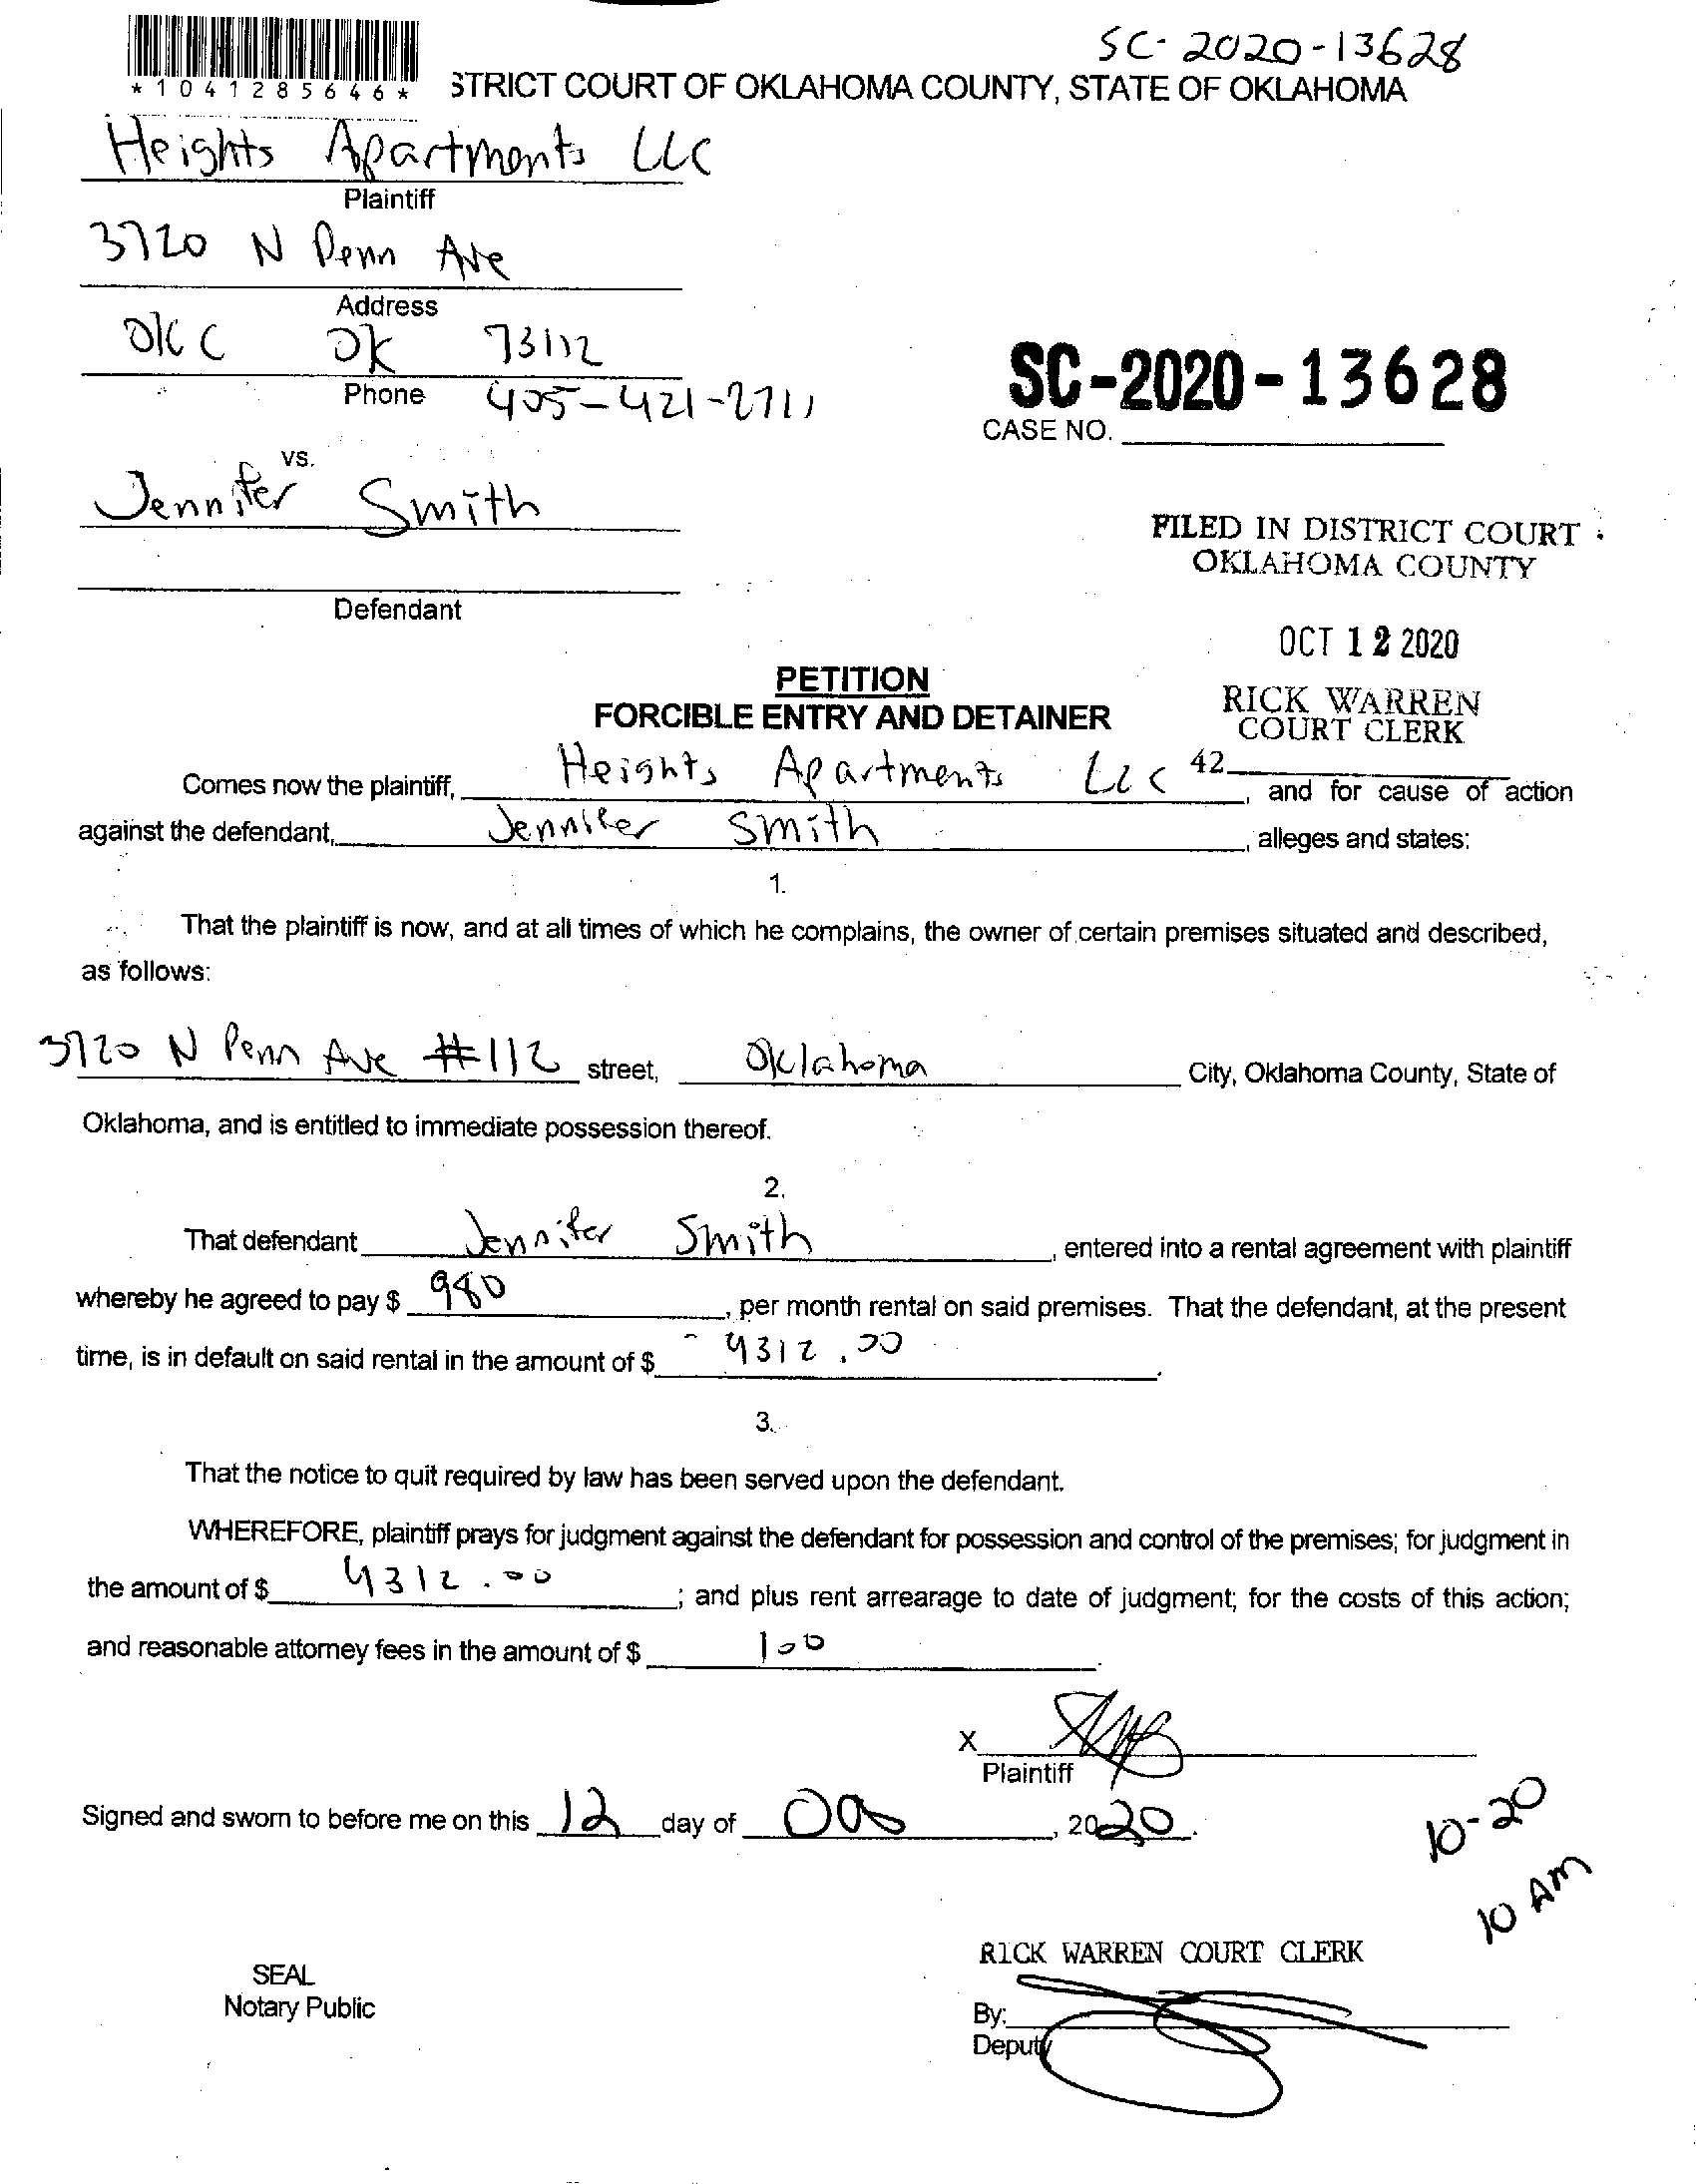 SC-2020-13628
*1041285646*
STRICT COURT OF OKLAHOMA COUNTY, STATE OF OKLAHOMA
Heights Apartments LLC
Plaintiff
3720 N Penn Ave
Address
OKC OK 73112
Phone 405-421-2711
SC-2020-13628
CASE NO.
vs.
Jennifer Smith
FILED IN DISTRICT COURT
OKLAHOMA COUNTY
Defendant
OCT 12 2020
PETITION
FORCIBLE ENTRY AND DETAINER
RICK WARREN
COURT CLERK
42
Comes now the plaintiff, Heights Apartments LLC, and for cause of action
against the defendant, Jennifer Smith, alleges and states:
1.
That the plaintiff is now, and at all times of which he complains, the owner of certain premises situated and described,
as follows:
3720 N Penn Ave #112 street, Oklahoma City, Oklahoma County, State of
Oklahoma, and is entitled to immediate possession thereof.
2.
That defendant Jennifer Smith, entered into a rental agreement with plaintiff
whereby he agreed to pay $ 980, per month rental on said premises. That the defendant, at the present
time, is in default on said rental in the amount of $ 4312.00.
3.
That the notice to quit required by law has been served upon the defendant.
WHEREFORE, plaintiff prays for judgment against the defendant for possession and control of the premises; for judgment in
the amount of $ 4312.00; and plus rent arrearage to date of judgment; for the costs of this action;
and reasonable attorney fees in the amount of $ 100.
X
Plaintiff
Signed and sworn to before me on this 12 day of , 2020.
10-20
10 AM
RICK WARREN COURT CLERK
SEAL
Notary Public
By:
Deputy